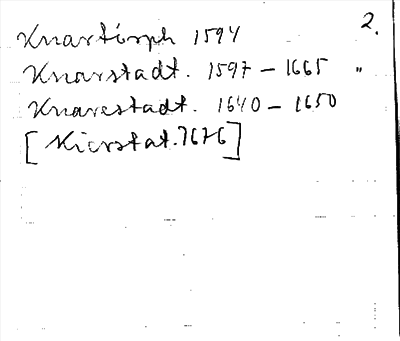 2.
Knartörph 1594
Knarstadt. 1597 – 1665 "
Knarestadt. 1640 – 1650
[Kierstat. 1676]